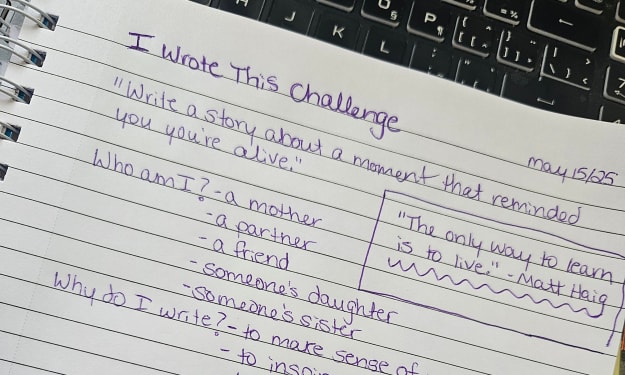 I Wrote This Challenge
may 15/25
"Write a story about a moment that reminded
you you're alive."
Who am I? - a mother
- a partner
- a friend
- someone's daughter
- someone's sister
"The only way to learn
is to live." - Matt Haig
Why do I write? - to make sense of
- to
J
K
L
P